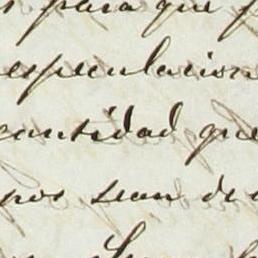 para que
especulacion
cantidad que
pos sean de